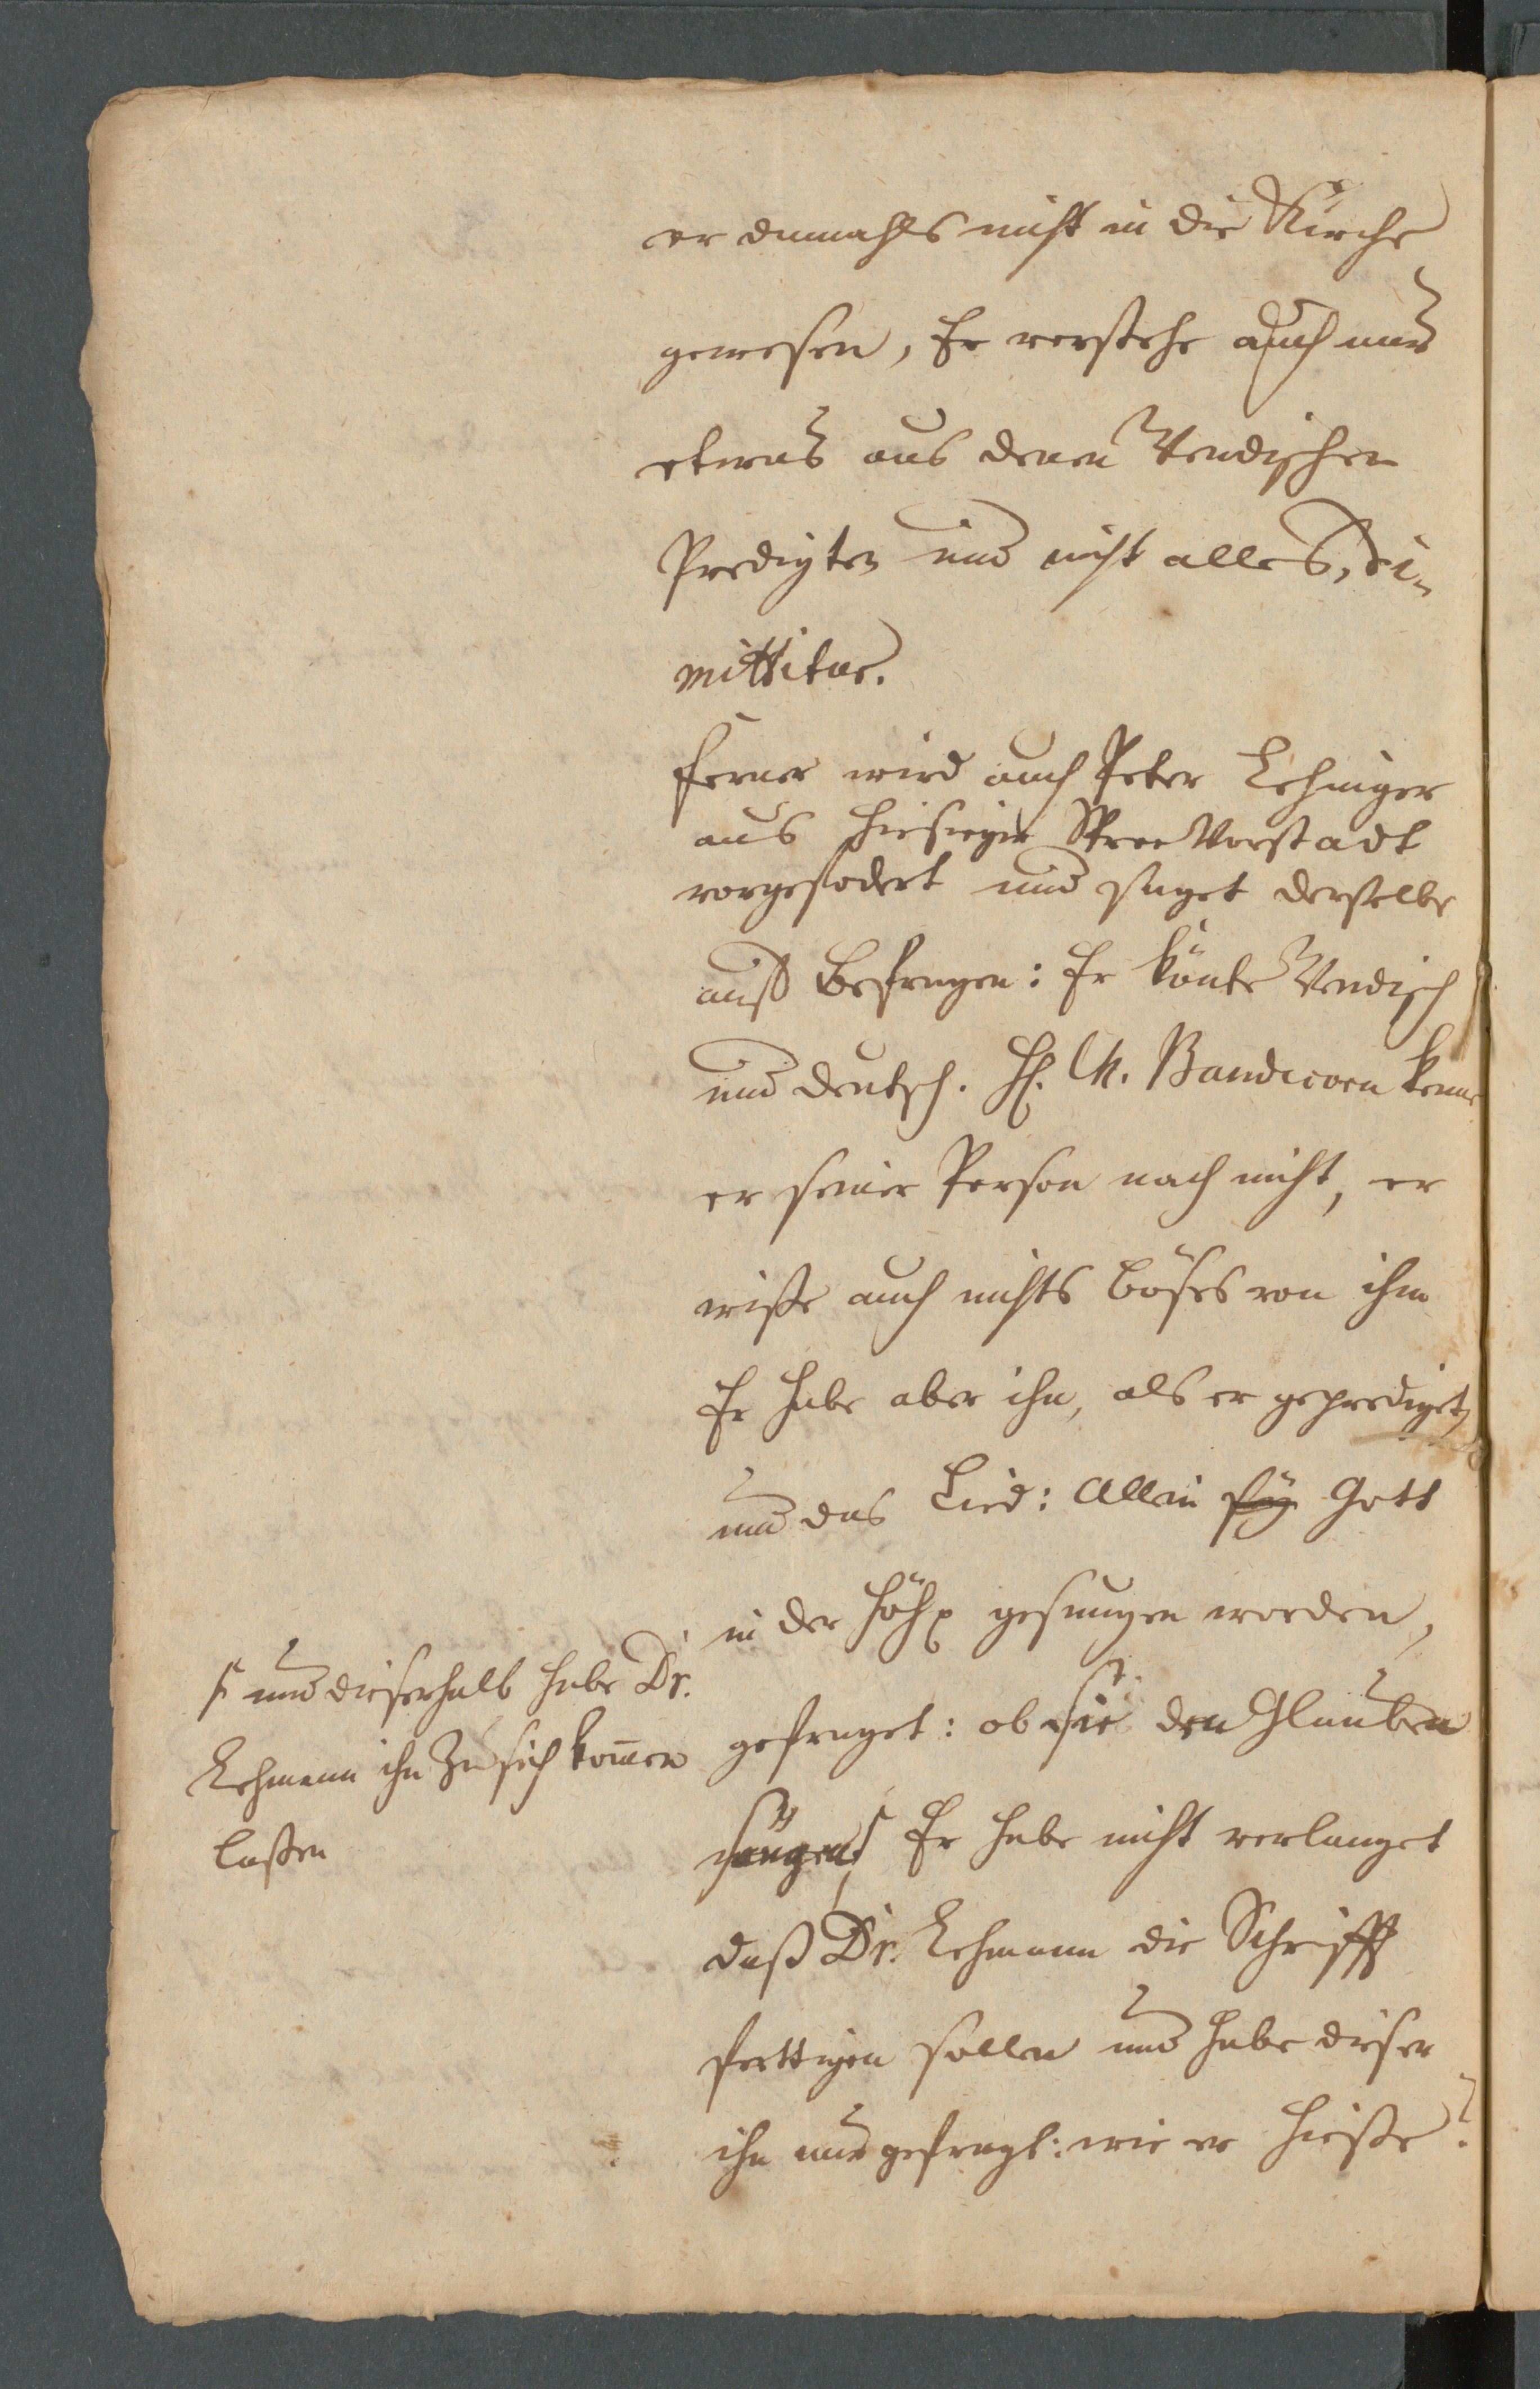 er damahls nicht in die Kirche
gewesen, Er verstehe auch nur
etwas aus denen Wendischen
Predigten und nicht alles, di-
mittitur.
Ferner wird auch Peter Lehniger
aus hiesiger Spree Vorstadt
vorgefodert und saget derselbe
auff Befragen: Er könte Wendisch
und deutsch. H. M. Bandicorn kenne
er seiner Person nach nicht, er
wiße auch nichts böses von ihm
Er habe aber ihn, als er geprediget,
und das Lied: Allein sey Gott
in der Höhe gesungen worden,
gefraget: ob sie den Glauben
süngen, Er habe nicht verlanget
daß Dr. Lehmann die Schrifft
fertigen sollen und habe dieser
ihn nur gefragt: wie er hieße?
und dieserhalb habe Dr.
Lehmann ihn zu sich kom̄en
laßen